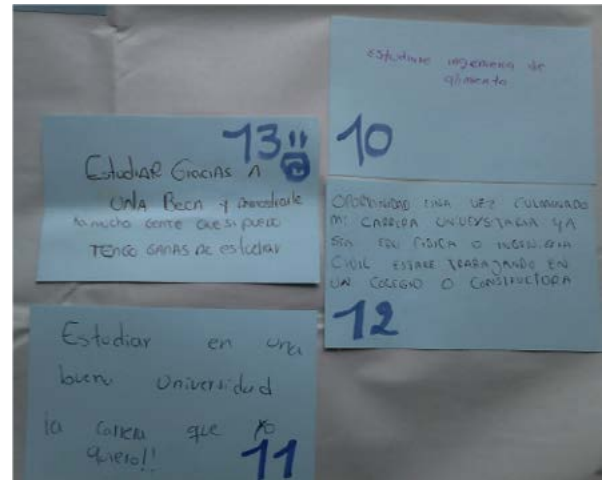 13!!
Estudiar Gracias A
Una Beca y demostrarle
a mucha gente que si puedo
TENGO GANAS DE estudiar
10
estudiare ingenieria de
alimento
OPORTUNIDAD UNA VEZ CULMINADO
MI CARRERA UNIVERSITARIA YA
SEA EDU FISICA O INGENIERIA
CIVIL ESTARE TRABAJANDO EN
UN COLEGIO O CONSTRUCTORA
12
Estudiar en una
buena Universidad
la carrera que yo
quiero!!
11